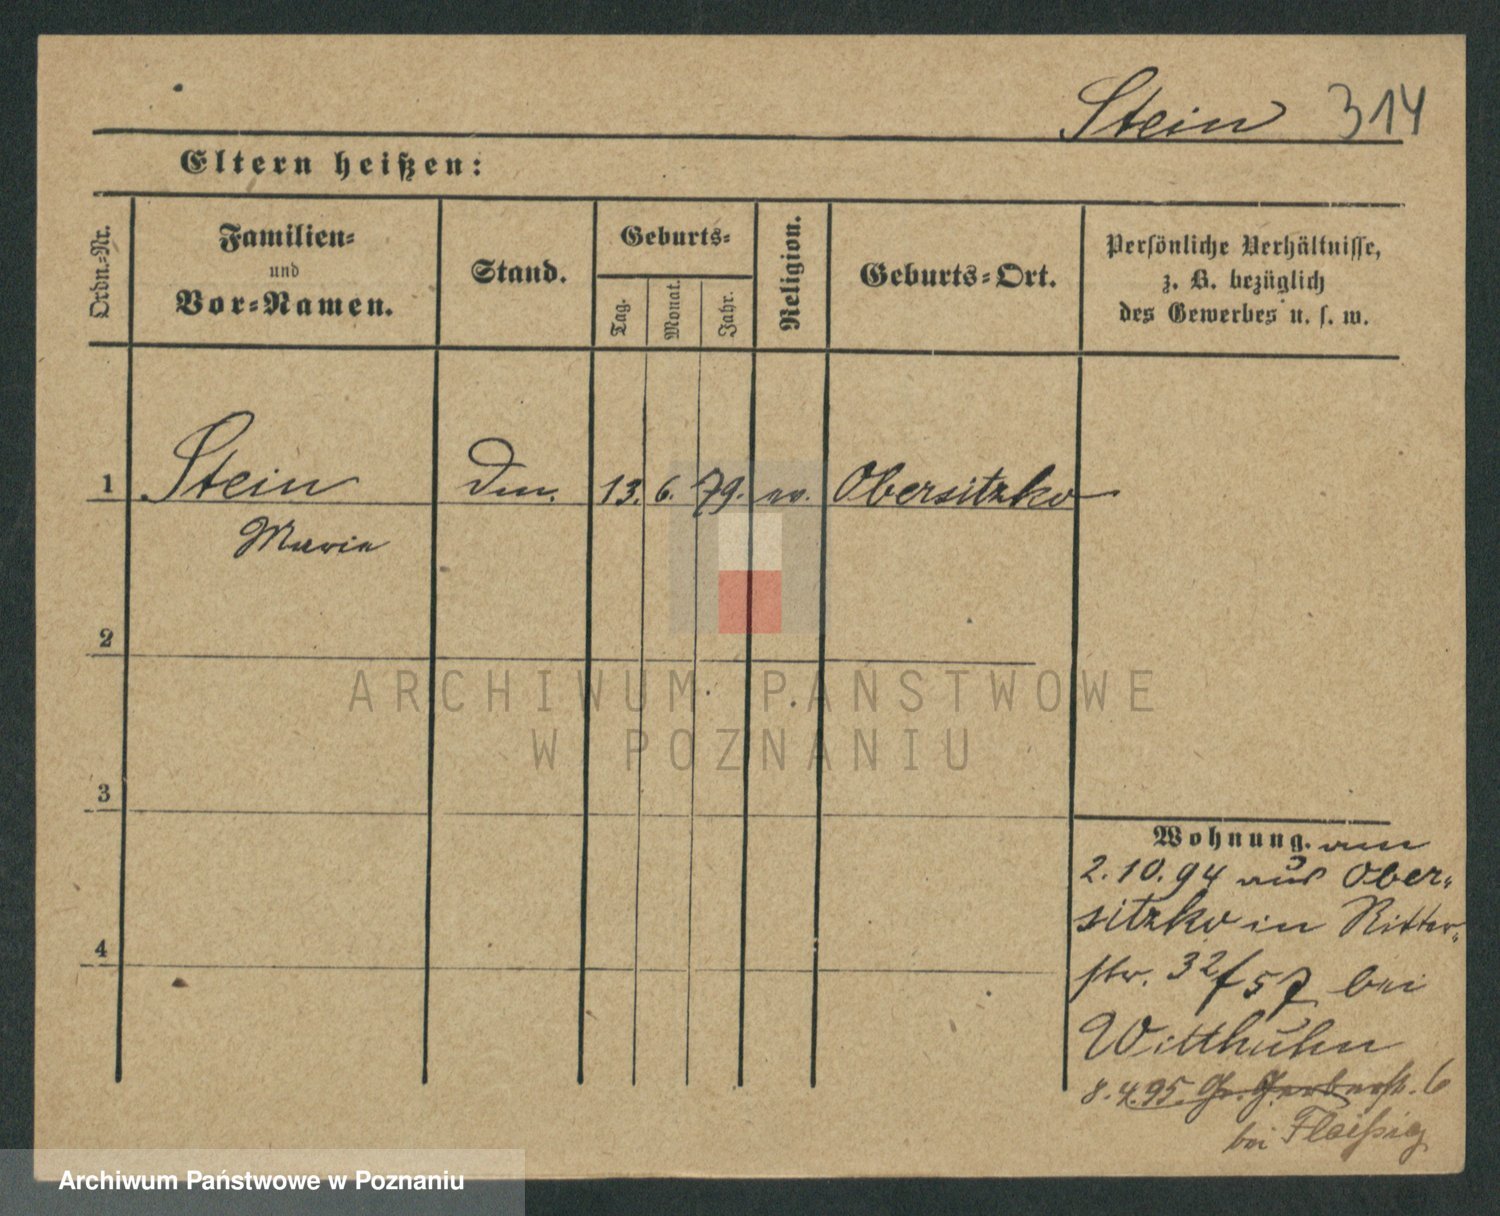 Stein 314
Eltern heißen:
Ordn.-Nr.
Familien-
und
Vor-Namen.
Stand.
Geburts-
Tag.
Monat.
Jahr.
Religion.
Geburts-Ort.
Persönliche Verhältnisse,
z. B. bezüglich
des Gewerbes u. s. w.
1 Stein 13. 6. 79. ev. Obersitzko
Marie
2
3
4
Wohnung. am
2.10.94 aus Ober-
sitzko in Ritter-
str. 32 bei
Witthuhn
8.4.95 Gr. Gerberstr. 6
bei Fleißig
ARCHIWUM PAŃSTWOWE
W POZNANIU
Archiwum Państwowe w Poznaniu